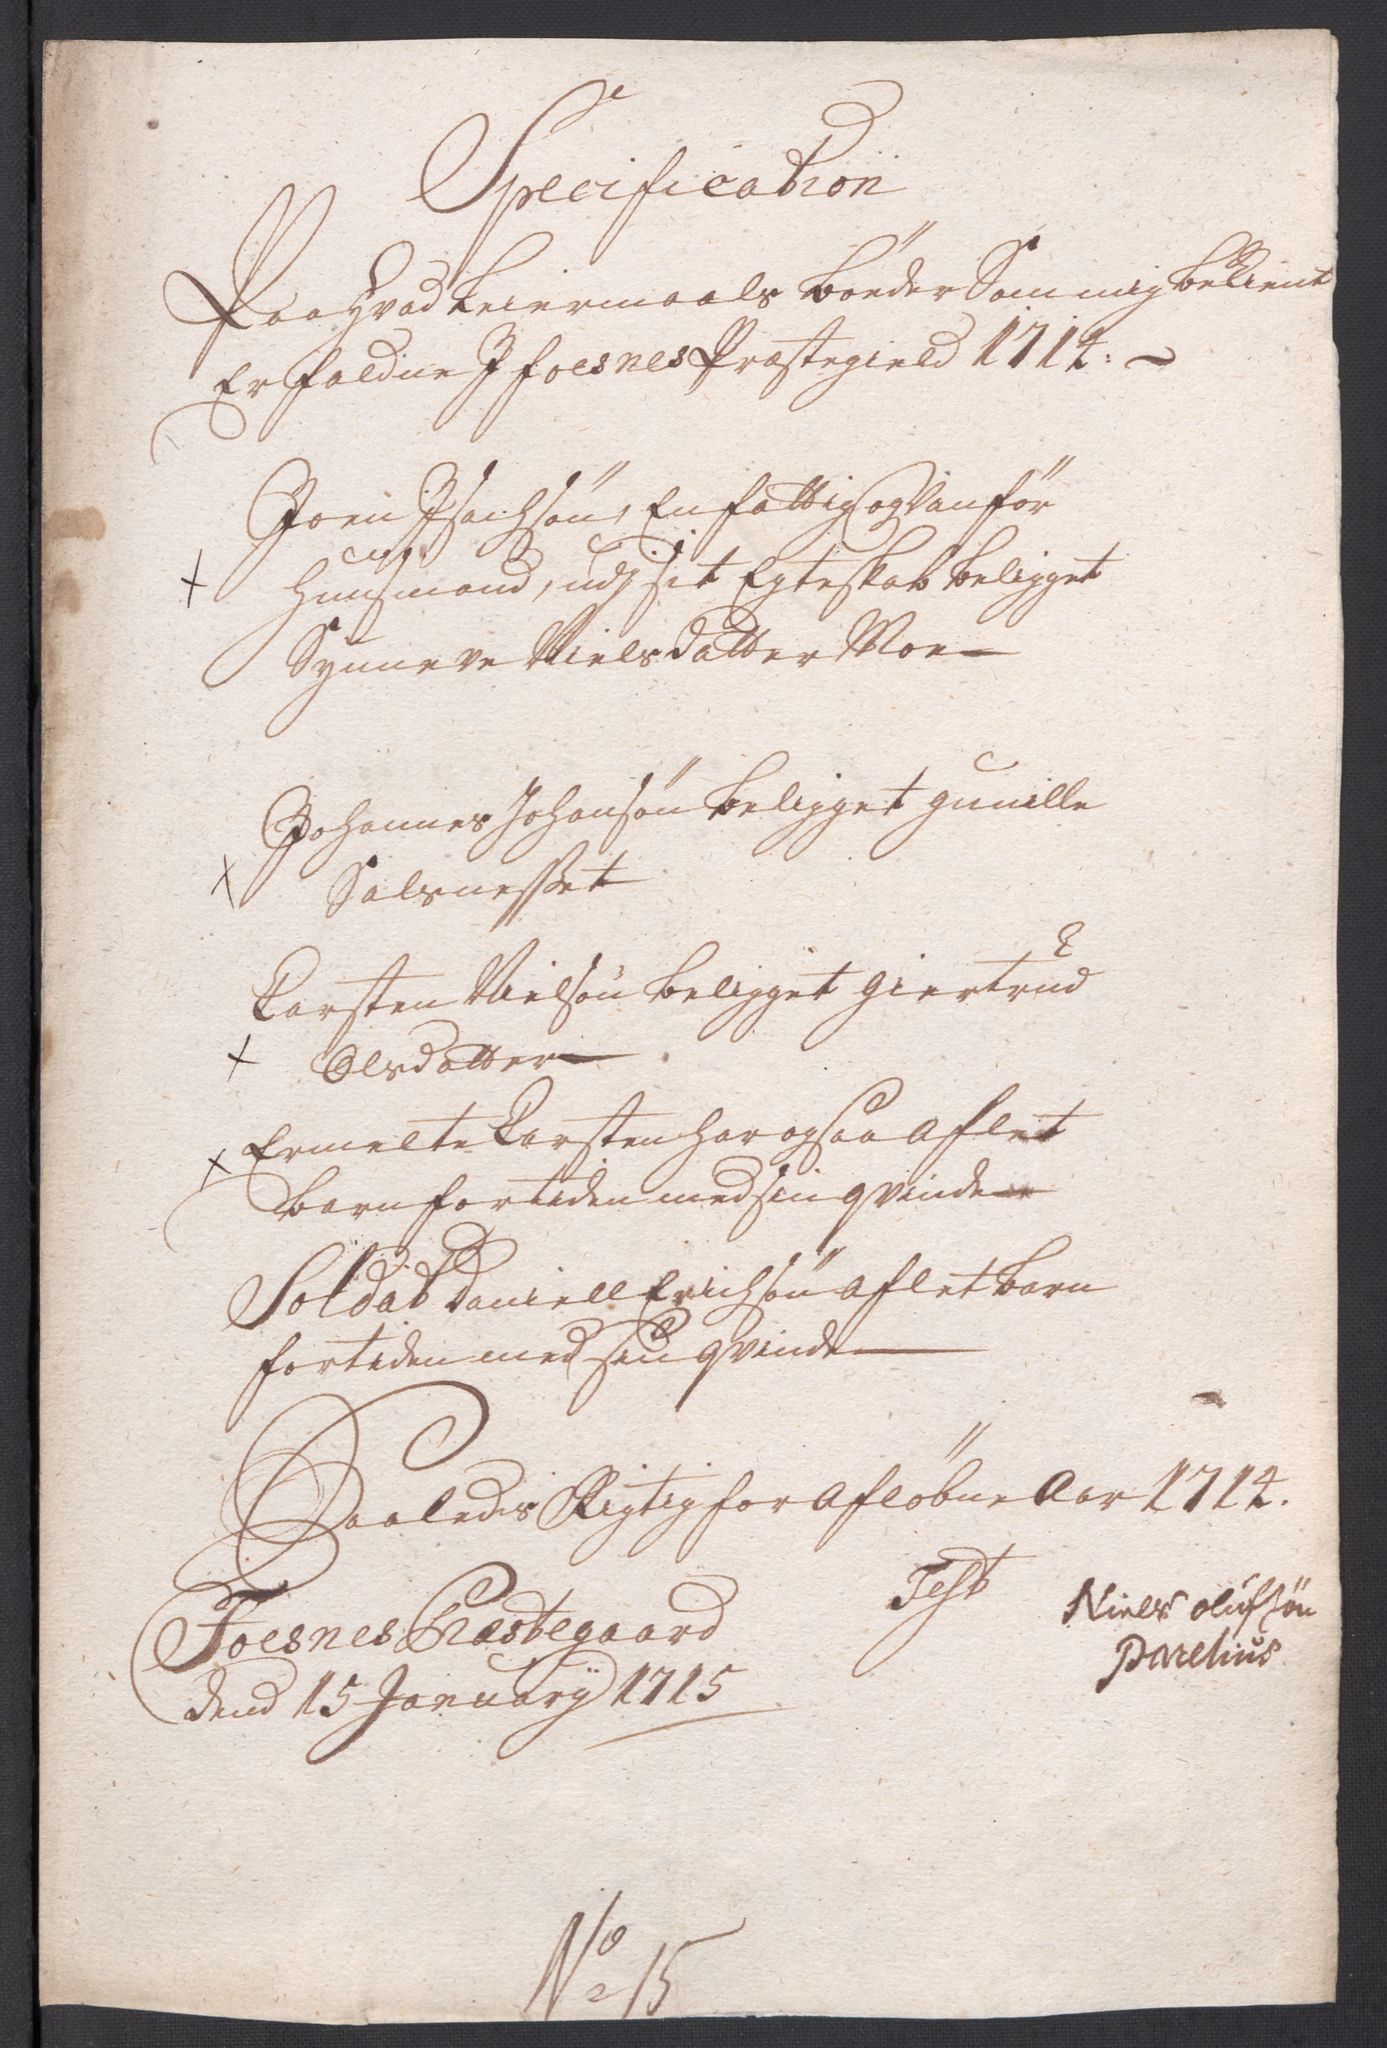 Specification
Paa Hvad Leiermaals bøder Som mig bekient
Er faldne J Foesnes Præstegield 1714:
Joen Jsachsøn, En fattig og Vanfør
+ Huusmand, udj sit Egteskab beligget
Synneve Nielsdatter Moe
Johannes Johansøn beligget gunille
+ Salsnesset
Carsten Nielsøn beligget giertrud
+ Olsdatter
+ Ermelte Carsten har ogsaa aflet
barn for tiden med sin qvinde
Soldat Daniell Erichsøn aflet barn
for tiden med sin qvinde
Saaledis Rigtig for afløbne Aar 1714.
Foesnes Præstegaard Test Niels olufsøn
dend 15 January 1715 Parelius
No 15